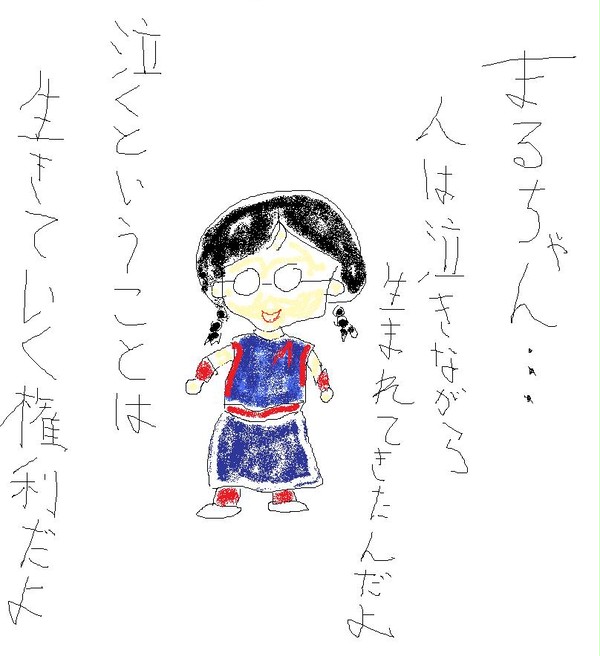 まるちゃん・・・
人は泣きながら
生まれてきたんだよ
泣くということは
生きていく権利だよ